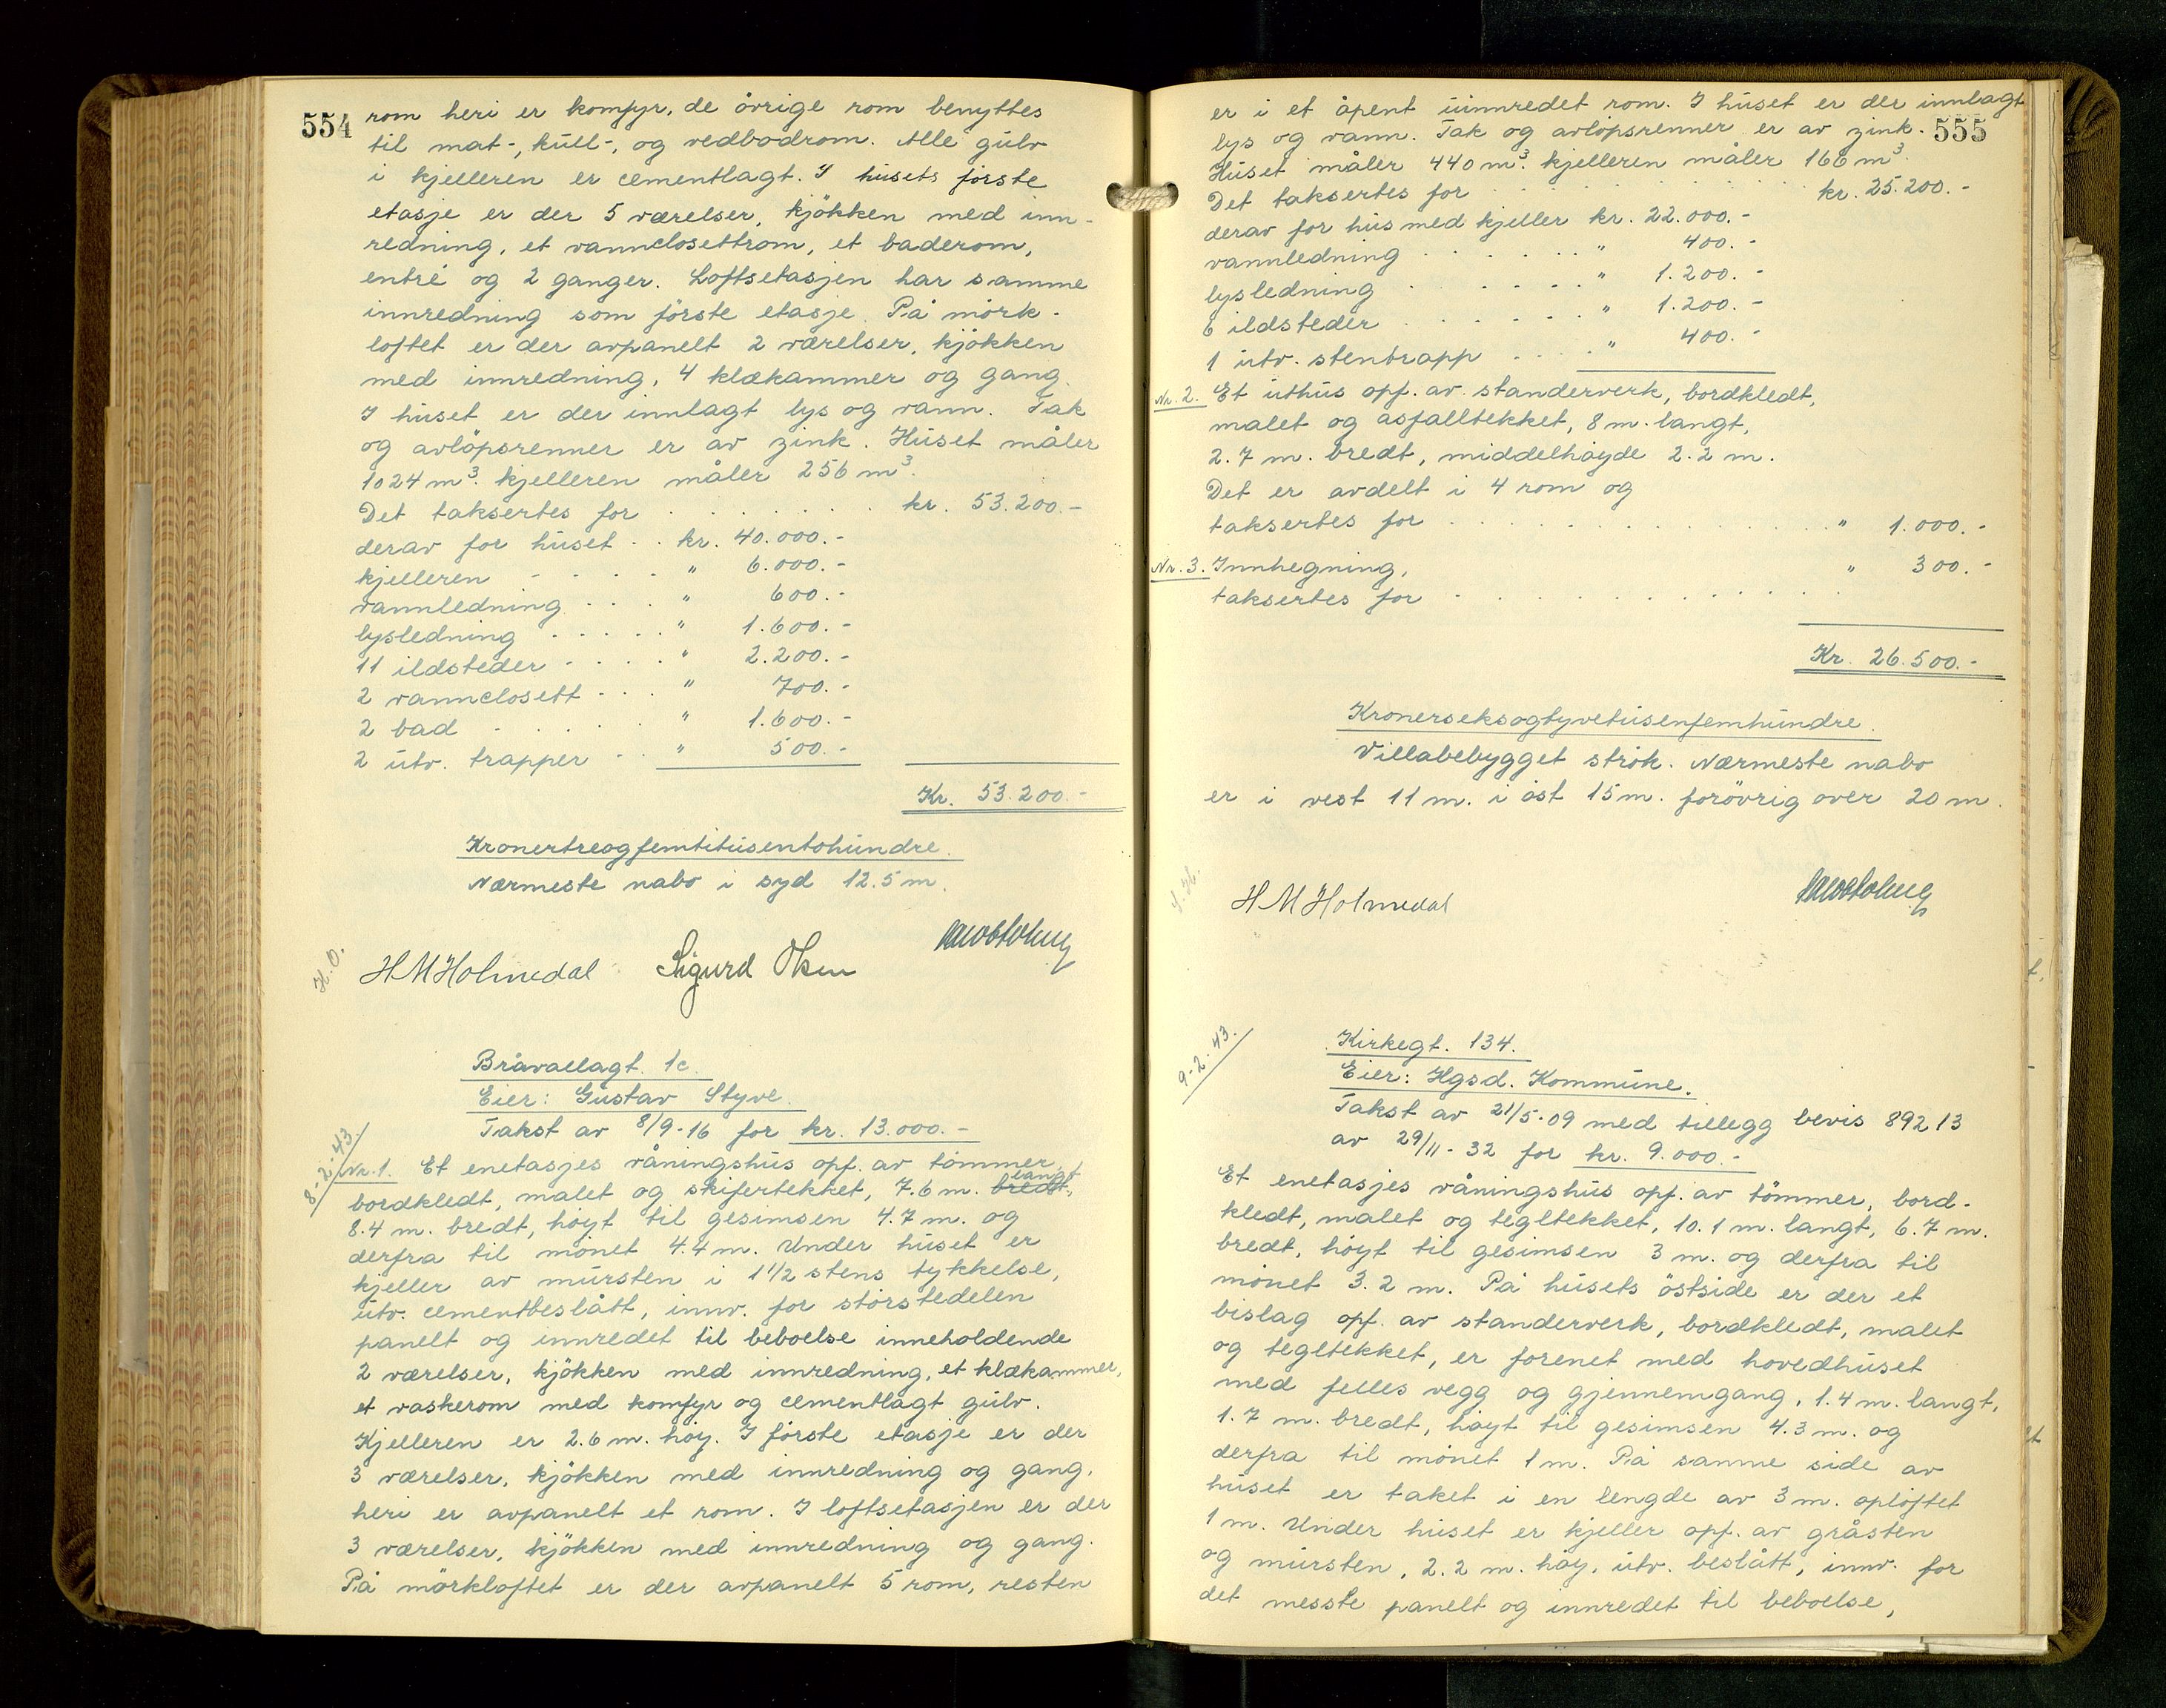 554
rom heri er komfyr, de övrige rom benyttes
til mat-, kull-, og vedbodrom. Alle gulv
i kjelleren er cementlagt. I husets förste
etasje er der 5 værelser, kjökken med inn-
redning, et vannclosettrom, et baderom,
entré og 2 ganger. Loftsetasjen har samme
innredning som förste etasje. På mörk-
loftet er der avpanelt 2 værelser, kjökken
med innredning, 4 klækammer og gang.
I huset er der innlagt lys og vann. Tak
og avlöpsrenner er av zink. Huset måler
1024 m³. kjelleren måler 256 m³.
Det taksertes for . . . . . . . kr. 53.200.-
derav for huset . . kr. 40.000.-
kjelleren - . . . . " 6.000.-
vannledning . . . . " 600.-
lysledning . . . . . " 1.600.-
11 ildsteder . . . . " 2.200.-
2 vannclosett . . . " 700.-
2 bad . . . . . " 1.600.-
2 utv. trapper . . " 500.-
Kr. 53.200.-
Kronertreogfemtitusentohundre.
Nærmeste nabo i syd 12.5 m.
H.O. HMHolmedal Sigurd
Bråvallagt. 1c.
Eier: Gustav Styve.
Takst av 8/9-16 for kr. 13.000.-
8-2-43.
Nr. 1. Et enetasjes våningshus opf. av tömmer,
langt
bordkledt, malet og skifertekket, 7.6 m. bredt,
8.4 m. bredt, höyt til gesimsen 4.7 m. og
derfra til mönet 4.4 m. Under huset er
kjeller av mursten i 1 1/2 stens tykkelse,
utv. cementbeslått, innv. for störstedelen
panelt og innredet til beboelse inneholdende
2 værelser, kjökken med innredning, et klækammer,
et vaskerom med komfyr og cementlagt gulv.
Kjelleren er 2.6 m. höy. I förste etasje er der
3 værelser, kjökken med innredning og gang,
heri er avpanelt et rom. I loftsetasjen er der
3 værelser, kjökken med innredning og gang.
På mörkloftet er der avpanelt 5 rom, resten
555
er i et åpent uinnredet rom. I huset er der innlagt
lys og vann. Tak og avlöpsrenner er av zink.
Huset måler 440 m³. kjelleren måler 166 m³.
Det taksertes for . . . . . . . . kr. 25.200.-
derav for hus med kjeller kr. 22.000.-
vannledning . . . . . . " 400.-
lysledning . . . . . . " 1.200.-
6 ildsteder . . . . . . " 1.200.-
1 utv. stentrapp . . . . " 400.-
Nr. 2. Et uthus opf. av standerverk, bordkledt,
malet og asfalltekket, 8 m. langt,
2.7 m. bredt, middelhöyde 2.2 m.
Det er avdelt i 4 rom og
taksertes for . . . . . . . . . . . . " 1.000.-
Nr. 3. Innhegning, " 300.-
taksertes for . . . . . . . . . . .
Kr. 26.500.-
Kronerseksogtyvetusenfemhundre.
Villabebygget strök. Nærmeste nabo
er i vest 11 m. i öst 15 m. forövrig over 20 m.
HMHolmedal
9-2-43.
Kirkegt. 134.
Eier: Hgsd. Kommune.
Takst av 21/5-09 med tillegg bevis 89213
av 29/11-32 for kr. 9.000.-
Et enetasjes våningshus opf. av tömmer, bord-
kledt, malet og tegltekket, 10.1 m. langt, 6.7 m.
bredt, höyt til gesimsen 3 m. og derfra til
mönet 3.2 m. På husets östside er der et
bislag opf. av standerverk, bordkledt, malet
og tegltekket, er forenet med hovedhuset
med felles vegg og gjennemgang, 1.4 m. langt,
1.7 m. bredt, höyt til gesimsen 4.3 m. og
derfra til mönet 1 m. På samme side av
huset er taket i en lengde av 3 m. oplöftet
1 m. Under huset er kjeller opf. av gråsten
og mursten, 2.2 m. höy, utv. beslått, innv. for
det messte panelt og innredet til beboelse,